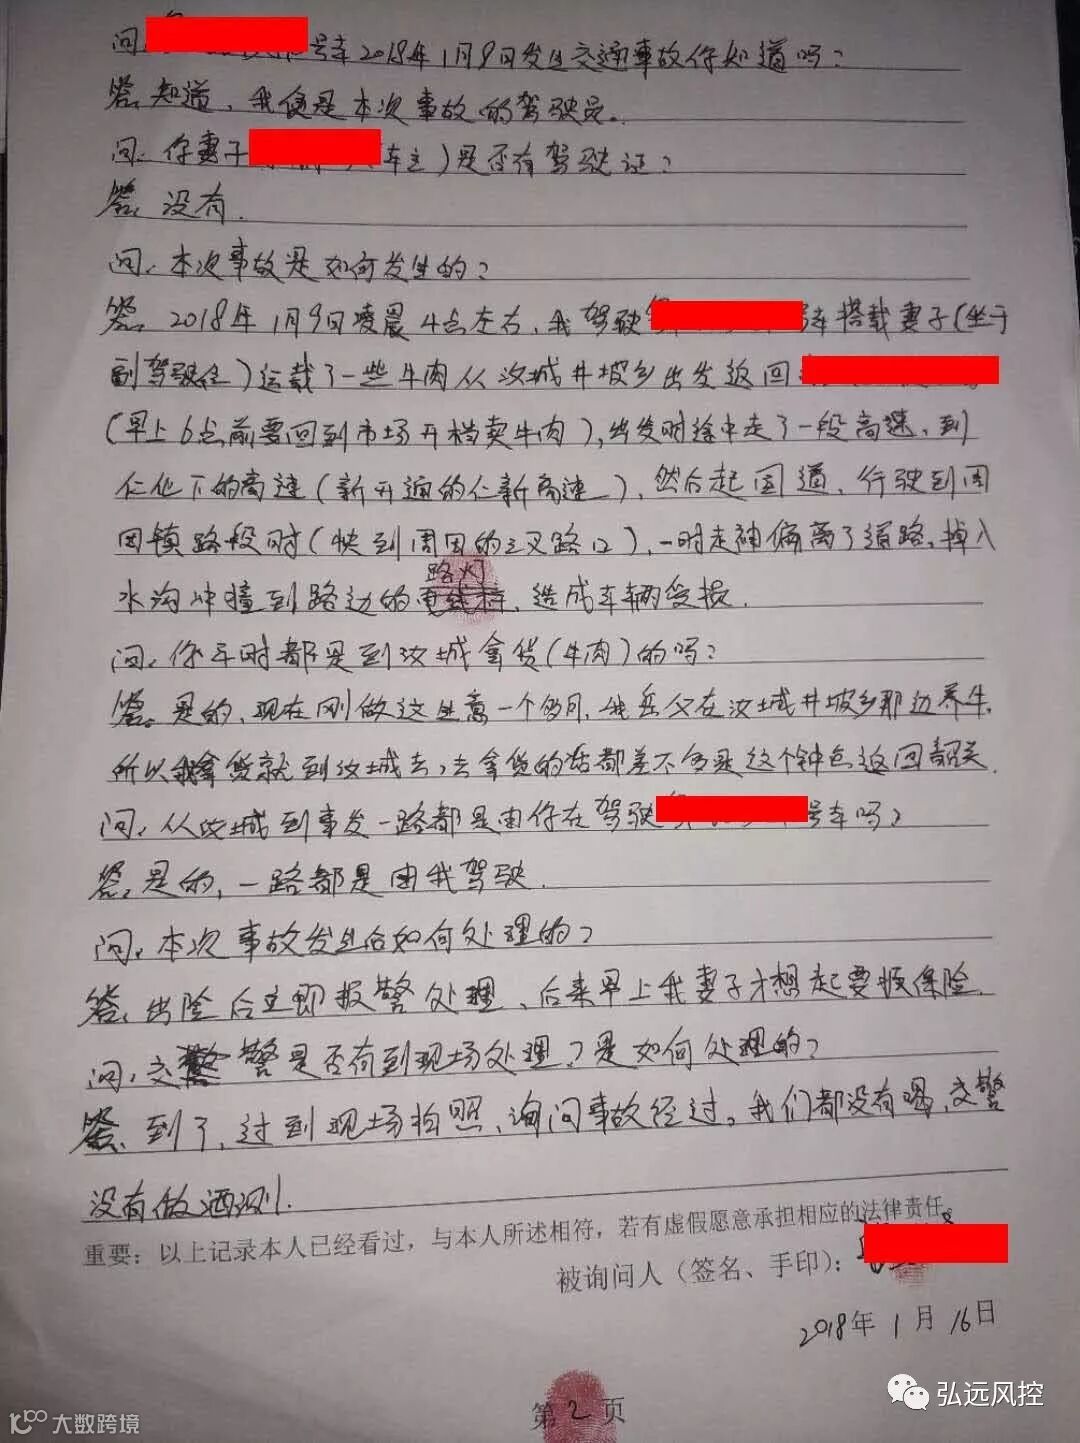 问: 号车2018年1月9日发生交通事故你知道吗?
答:知道,我便是本次事故的驾驶员。
问:你妻子 (车主)是否有驾驶证?
答:没有.
问:本次事故是如何发生的?
答:2018年1月9日凌晨4点左右,我驾驶 号车搭载妻子(坐于
副驾驶位)运载了一些牛肉从汝城井坡乡出发返回
(早上6点前要回到市场开档卖牛肉),出发时途中走了一段高速,到
仁化下的高速(新开通的仁新高速),然后走国道,行驶到周
田镇路段时(快到周田的三叉路口),一时走神偏离了道路,掉入
路灯
水沟冲撞到路边的电线杆,造成车辆受损.
问:你平时都是到汝城拿货(牛肉)的吗?
答:是的,现在刚做这生意一个多月,我岳父在汝城井坡乡那边养牛,
所以我拿货就到汝城去,去拿货的话都差不多是这个钟点返回韶关.
问:从汝城到事发一路都是由你在驾驶 号车吗?
答:是的,一路都是由我驾驶.
问:本次事故发生后如何处理的?
答:出险后立即报警处理,后来早上我妻子才想起要报保险.
问:交警是否有到现场处理?是如何处理的?
答:到了,过到现场拍照,询问事故经过。我们都没有喝,交警
没有做酒测.
重要:以上记录本人已经看过,与本人所述相符,若有虚假愿意承担相应的法律责任。
被询问人(签名、手印):
2018年1月16日
第2页
弘远风控
大数跨境